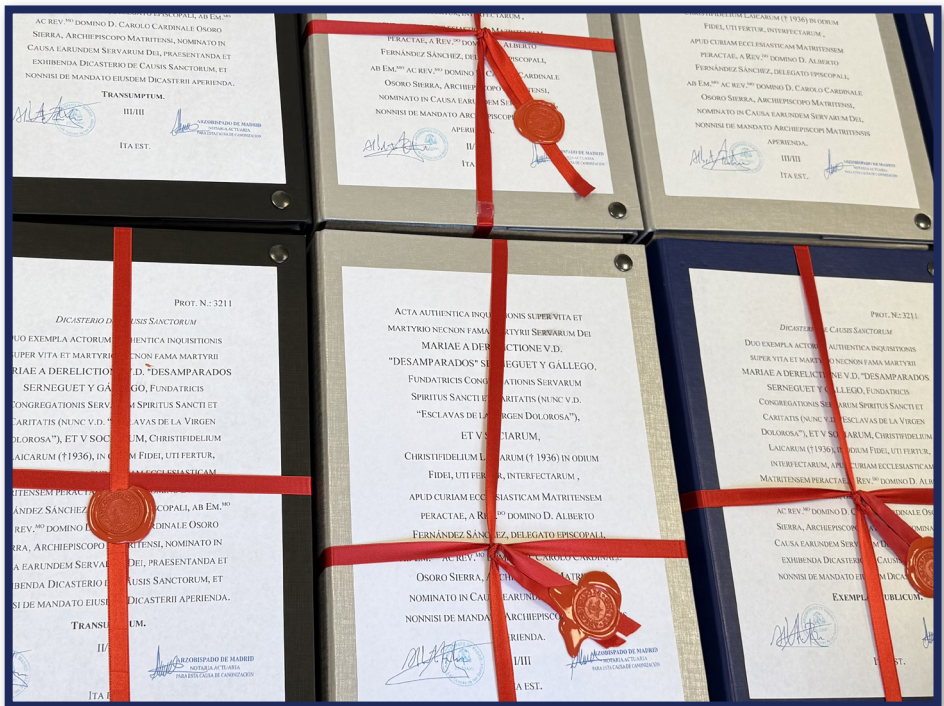 REV.MO DOMINO D. CAROLO CARDINALE OSORO
SIERRA, ARCHIEPISCOPO MATRITENSI, NOMINATO IN
CAUSA EARUNDEM SERVARUM DEI, PRAESENTANDA ET
EXHIBENDA DICASTERIO DE CAUSIS SANCTORUM, ET
NONNISI DE MANDATO EIUSDEM DICASTERII APERIENDA.
TRANSUMPTUM.
III/III
ARZOBISPADO DE MADRID
NOTARIA ACTUARIA
PARA ESTA CAUSA DE CANONIZACIÓN
ITA EST.
FIDEI, UTI FERTUR, INTERFECTARUM,
PERACTAE, A REV.DO DOMINO D. ALBERTO
FERNÁNDEZ SÁNCHEZ, EPISCOPALI,
AB EM.MO AC REV.MO DOMINO CARDINALE
OSORO SIERRA,
NOMINATO IN CAUSA EARUNDEM
NONNISI DE MANDATO
II/
LAICARUM († 1936) IN ODIUM
FIDEI, UTI FERTUR, INTERFECTARUM,
APUD CURIAM ECCLESIASTICAM MATRITENSEM
PERACTAE, A REV.DO DOMINO D. ALBERTO
FERNÁNDEZ SÁNCHEZ, DELEGATO EPISCOPALI,
AB EM.MO AC REV.MO DOMINO D. CAROLO CARDINALE
OSORO SIERRA, ARCHIEPISCOPO MATRITENSI,
NOMINATO IN CAUSA EARUNDEM SERVARUM DEI,
NONNISI DE MANDATO ARCHIEPISCOPI MATRITENSIS
APERIENDA.
III/III
ARZOBISPADO DE MADRID
NOTARIA ACTUARIA
PARA ESTA CAUSA DE CANONIZACIÓN
ITA EST.
PROT. N.: 3211
DICASTERIO DE CAUSIS SANCTORUM
DUO EXEMPLA ACTORUM AUTHENTICA INQUISITIONIS
SUPER VITA ET MARTYRIO NECNON FAMA MARTYRII
MARIAE A DERELICTIONE V.D. "DESAMPARADOS
SERNEGUET Y GÁLLEGO, FUNDATRICIS
CONGREGATIONIS SERVARUM SPIRITUS SANCTI ET
CARITATIS (NUNC V.D. "ESCLAVAS DE LA VIRGEN
DOLOROSA"), ET V SOCIARUM, CHRISTIFIDELIUM
LAICARUM (†1936), IN ODIUM FIDEI, UTI FERTUR,
ECCLESIASTICAM
SÁNCHEZ
REV.MO DOMINO CARDINALE OSORO
ARCHIEPISCOPO MATRITENSI, NOMINATO IN
EARUNDEM SERVARUM DEI, PRAESENTANDA ET
DICASTERIO DE CAUSIS SANCTORUM, ET
DE MANDATO EIUSDEM DICASTERII APERIENDA.
TRANSUMPTUM.
II/
ARZOBISPADO DE MADRID
NOTARIA ACTUARIA
PARA ESTA CAUSA DE CANONIZACIÓN
ITA
ACTA AUTHENTICA INQUISITIONIS SUPER VITA ET
MARTYRIO NECNON FAMA MARTYRII SERVARUM DEI
MARIAE A DERELICTIONE V.D.
"DESAMPARADOS" SERNEGUET Y GÁLLEGO,
FUNDATRICIS CONGREGATIONIS SERVARUM
SPIRITUS SANCTI ET CARITATIS (NUNC V.D.
"ESCLAVAS DE LA VIRGEN DOLOROSA"),
ET V SOCIARUM,
CHRISTIFIDELIUM LAICARUM († 1936) IN ODIUM
FIDEI, UTI FERTUR, INTERFECTARUM ,
APUD CURIAM ECCLESIASTICAM MATRITENSEM
PERACTAE, A REV.DO DOMINO D. ALBERTO
FERNÁNDEZ SÁNCHEZ, DELEGATO EPISCOPALI,
AC REV.MO CAROLO CARDINALE
OSORO SIERRA,
NOMINATO IN CAUSA EARUNDEM
NONNISI DE MANDATO
APERIENDA.
I/III
ARZOBISPADO DE MADRID
NOTARIA ACTUARIA
PARA ESTA CAUSA DE CANONIZACIÓN
ITA EST.
PROT. N.:3211
DICASTERIO DE CAUSIS SANCTORUM
DUO EXEMPLA ACTORUM AUTHENTICA INQUISITIONIS
SUPER VITA ET MARTYRIO NECNON FAMA MARTYRII
MARIAE A DERELICTIONE V.D. "DESAMPARADOS
SERNEGUET Y GÁLLEGO, FUNDATRICIS
CONGREGATIONIS SERVARUM SPIRITUS SANCTI ET
CARITATIS (NUNC V.D. "ESCLAVAS DE LA VIRGEN
DOLOROSA"), ET V SOCIARUM, CHRISTIFIDELIUM
LAICARUM (†1936), IN ODIUM FIDEI, UTI FERTUR,
INTERFECTARUM, APUD CURIAM ECCLESIASTICAM
MATRITENSEM PERACTAE, REV.DO DOMINO D.
FERNÁNDEZ SÁNCHEZ
AC REV.MO DOMINO D. CARDINALE
SIERRA, ARCHIEPISCOPO NOMINATO
CAUSA EARUNDEM
EXHIBENDA DICASTERIO
NONNISI DE MANDATO
EXEMPLAR PUBLICUM.